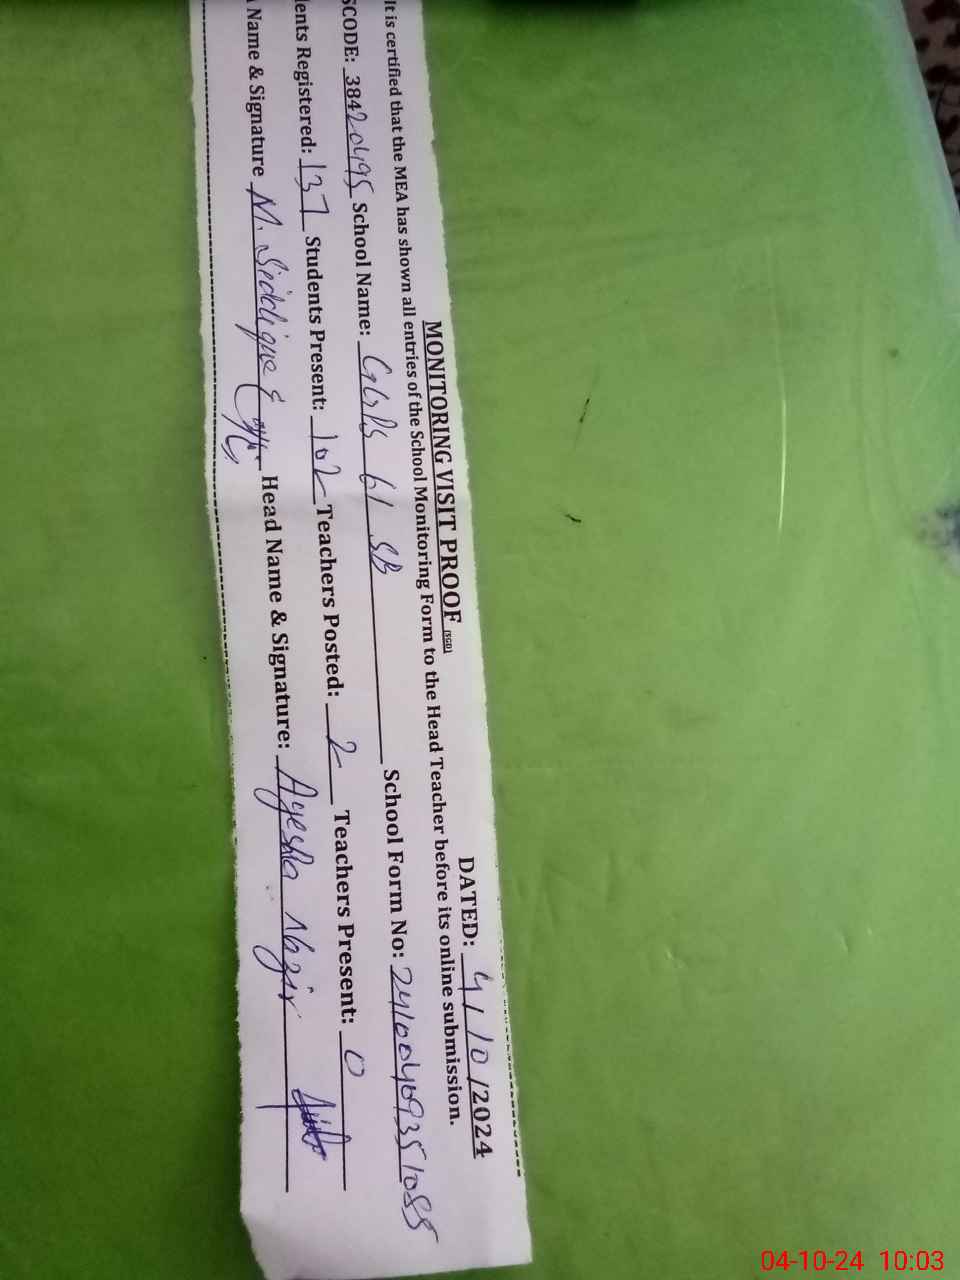 MONITORING VISIT PROOF [SGD] DATED: 4/10/2024
It is certified that the MEA has shown all entries of the School Monitoring Form to the Head Teacher before its online submission.
SCODE: 38420495 School Name: GGPS 61 SB School Form No: 24100409351055
ents Registered: 137 Students Present: 102 Teachers Posted: 2 Teachers Present: 0
Name & Signature M. Siddique Head Name & Signature: Ayesha Nazir
04-10-24 10:03